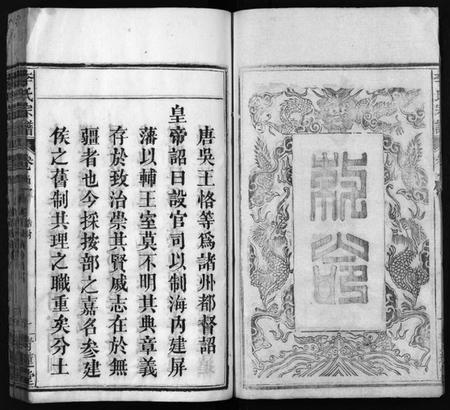 敕命
唐吳王恪等爲諸州都督詔
皇帝詔曰設官司以制海內建屏
藩以輔王室莫不明其典章義
存於致治崇其賢戚志在於無
疆者也今採按部之嘉名參建
侯之舊制其理之職重矣分土
李氏宗譜